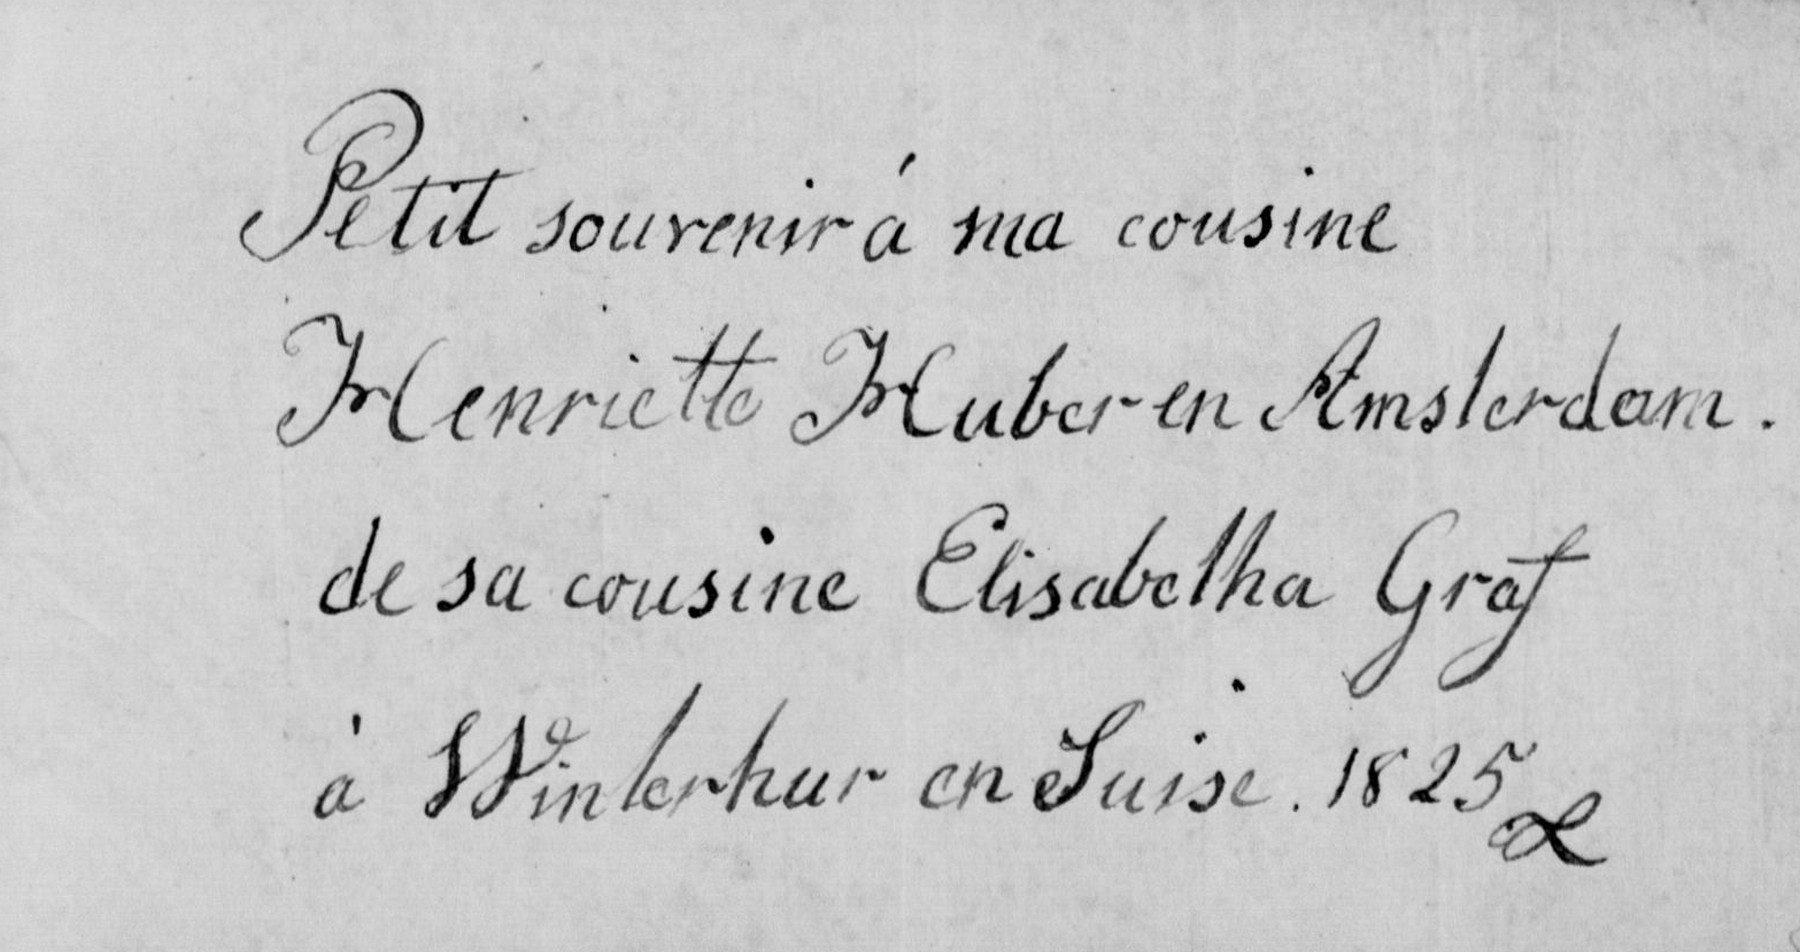 Petit souvenir á ma cousine
Henriette Huber en Amsterdam.
de sa cousine Elisabetha Graf
à Winterhur en Suise. 1825